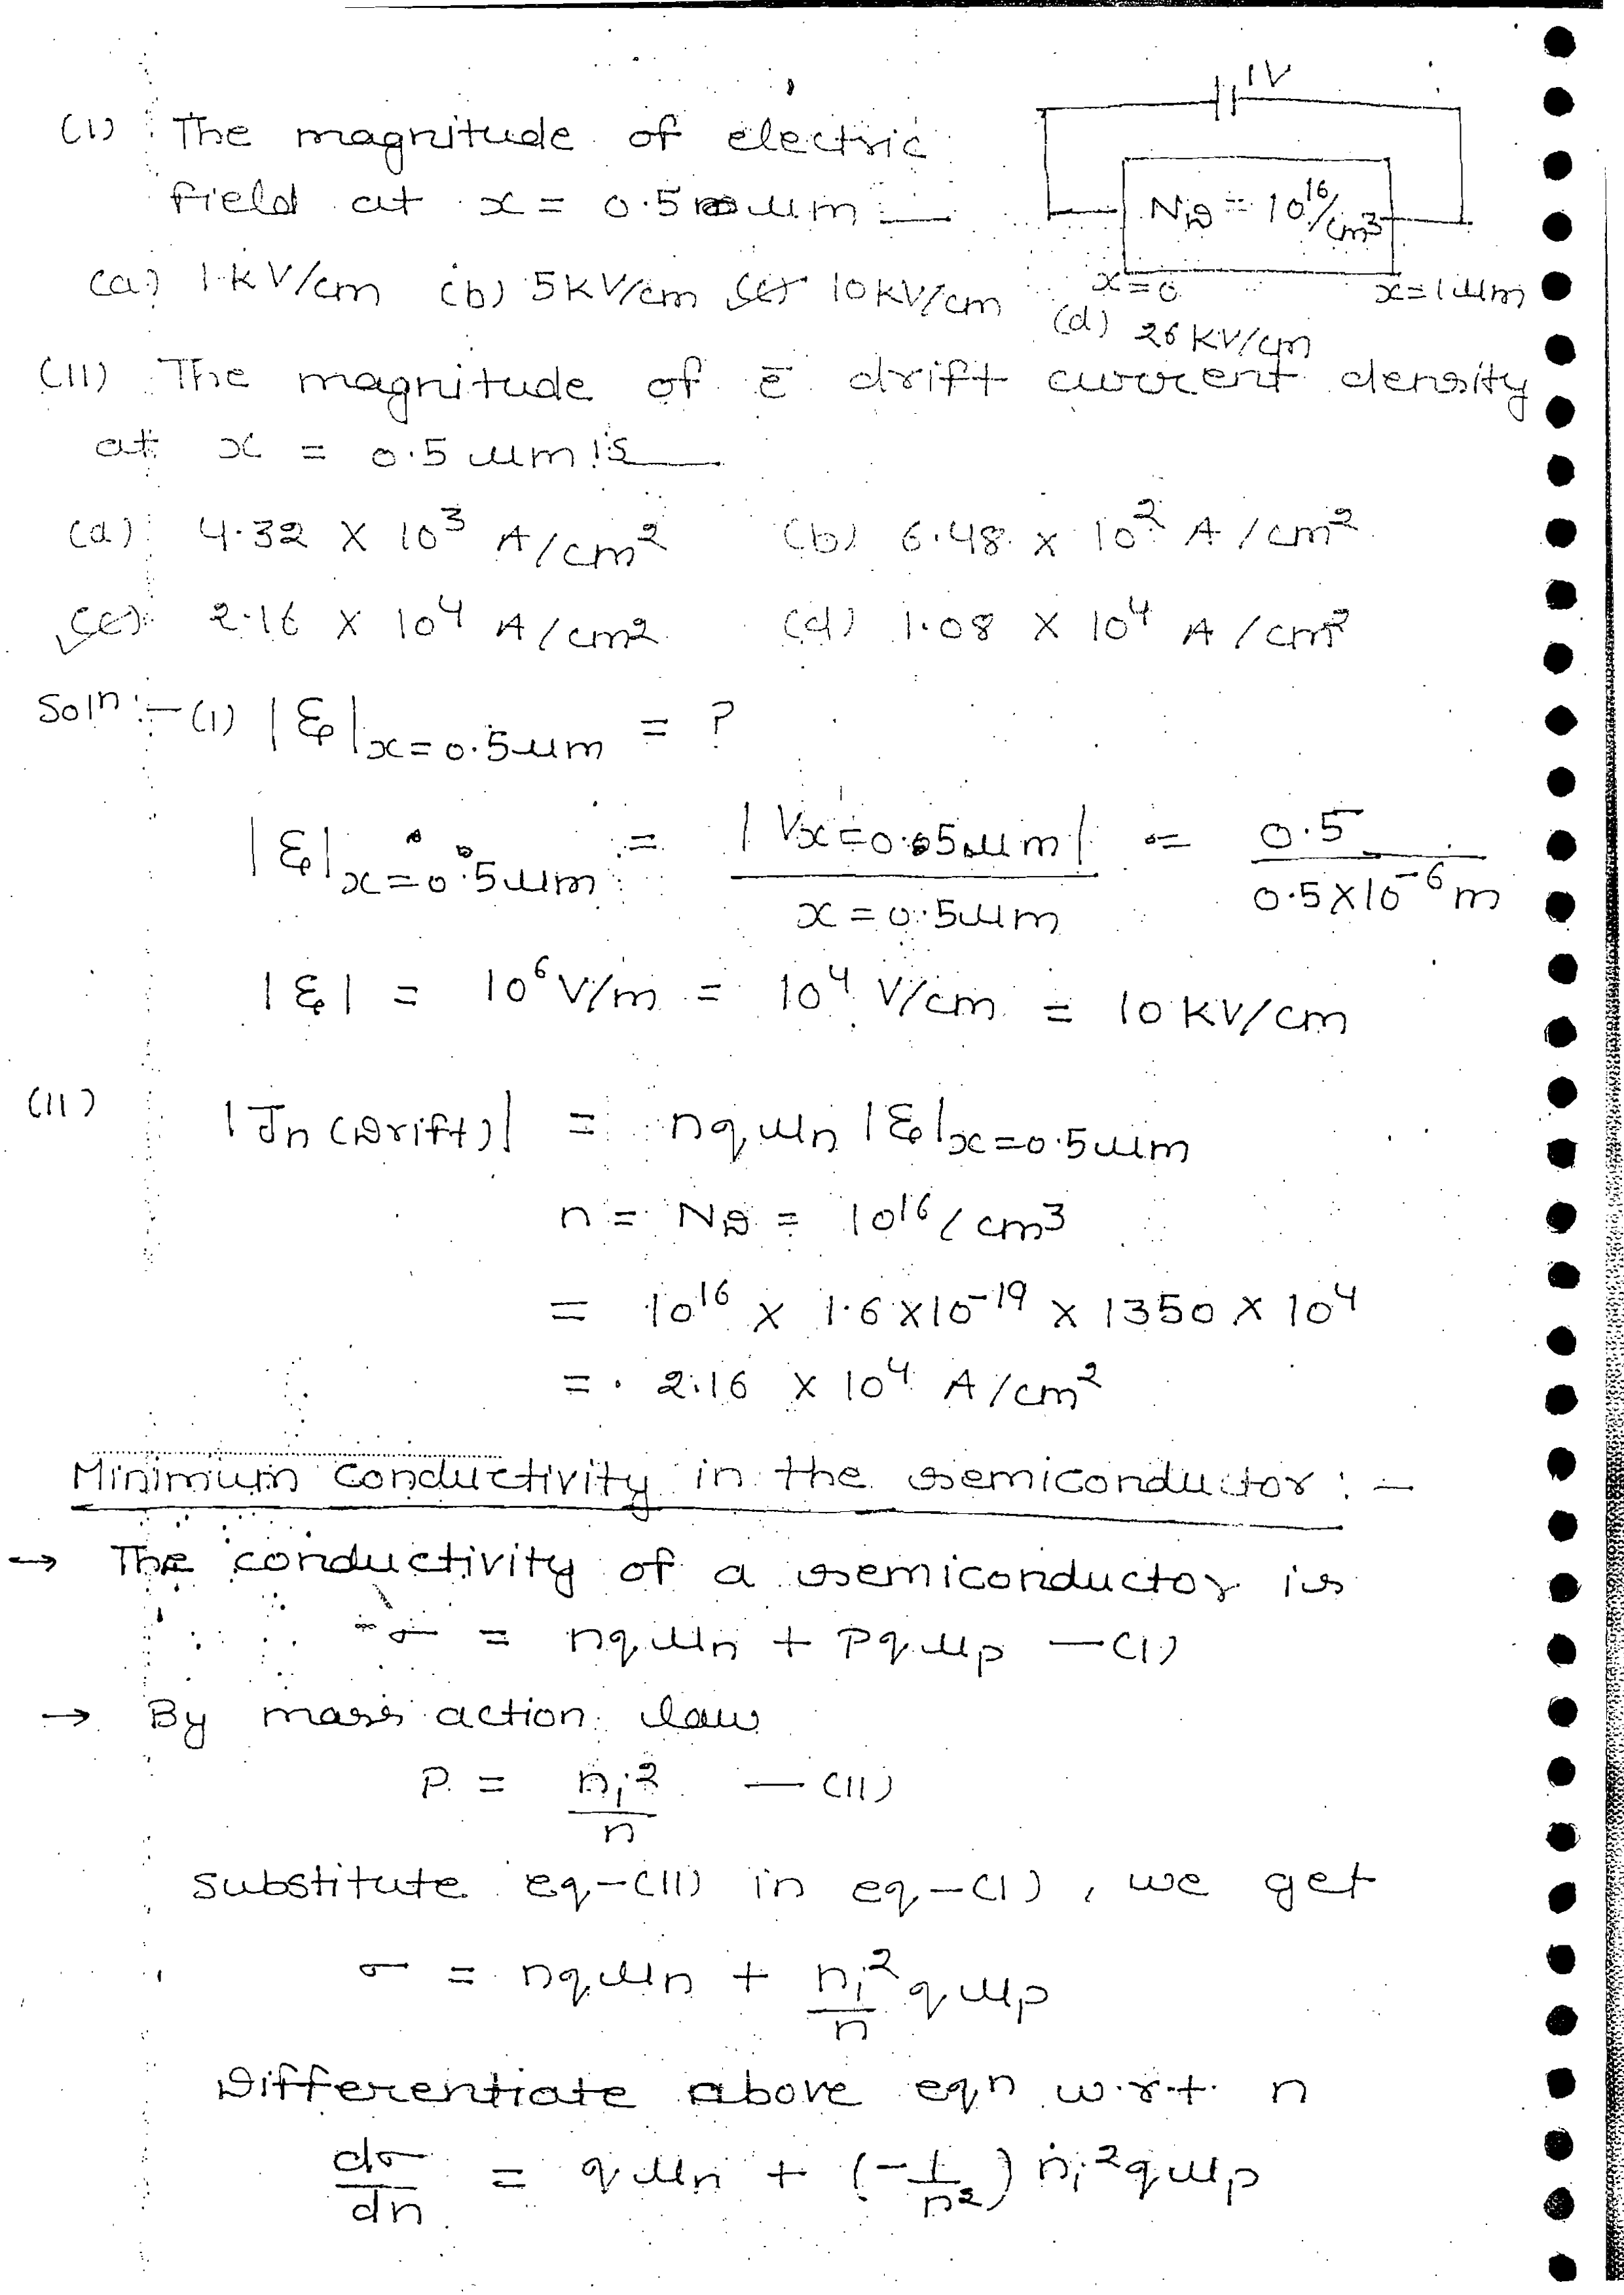 (I) The magnitude of electric
field at x = 0.5 μm —
1V
N_D = 10^16/cm^3
x=0
x=1μm
(a) 1 kV/cm (b) 5 kV/cm (c) 10 kV/cm (d) 26 kV/cm
(II) The magnitude of ē drift current density
at x = 0.5 μm is —
(a) 4.32 × 10^3 A/cm^2 (b) 6.48 × 10^2 A/cm^2
(c) 2.16 × 10^4 A/cm^2 (d) 1.08 × 10^4 A/cm^2
Soln :- (I) |Ɛ|x=0.5μm = ?
|Ɛ|x=0.5μm = |Vx=0.5μm| / x=0.5μm = 0.5 / 0.5×10^-6 m
|Ɛ| = 10^6 V/m = 10^4 V/cm = 10 kV/cm
(II) |Jn (Drift)| = nqμn |Ɛ|x=0.5μm
n = N_D = 10^16/cm^3
= 10^16 × 1.6×10^-19 × 1350 × 10^4
= 2.16 × 10^4 A/cm^2
Minimum conductivity in the semiconductor :-
→ The conductivity of a semiconductor is
σ = nqμn + pqμp — (I)
→ By mass action law
P = ni^2 / n — (II)
Substitute eq-(II) in eq-(I), we get
σ = nqμn + ni^2/n qμp
Differentiate above eqn w.r.t. n
dσ/dn = qμn + (-1/n^2) ni^2 qμp